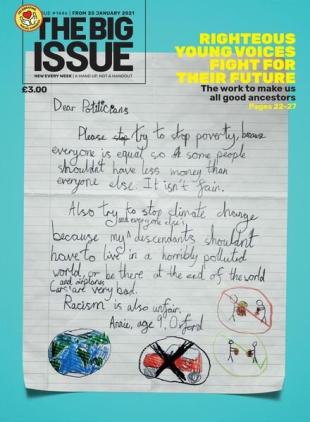 ISSUE #1446 | FROM 25 JANUARY 2021
THE BIG
ISSUE
NEW EVERY WEEK | A HAND UP, NOT A HANDOUT
£3.00
RIGHTEOUS
YOUNG VOICES
FIGHT FOR
THEIR FUTURE
The work to make us
all good ancestors
Pages 22-27
Dear Politicians
Please stop try to stop poverty, because
everyone is equal so some people
shouldn't have less money than
everyone else. It isn't fair.
Also try to stop climate change
and everyone else's
because my descendants shouldnt
have to live in a horribly polluted
world, or be there at the end of the world
and airplanes
Cars are very bad.
Racism is also unfair.
age 9, Oxford